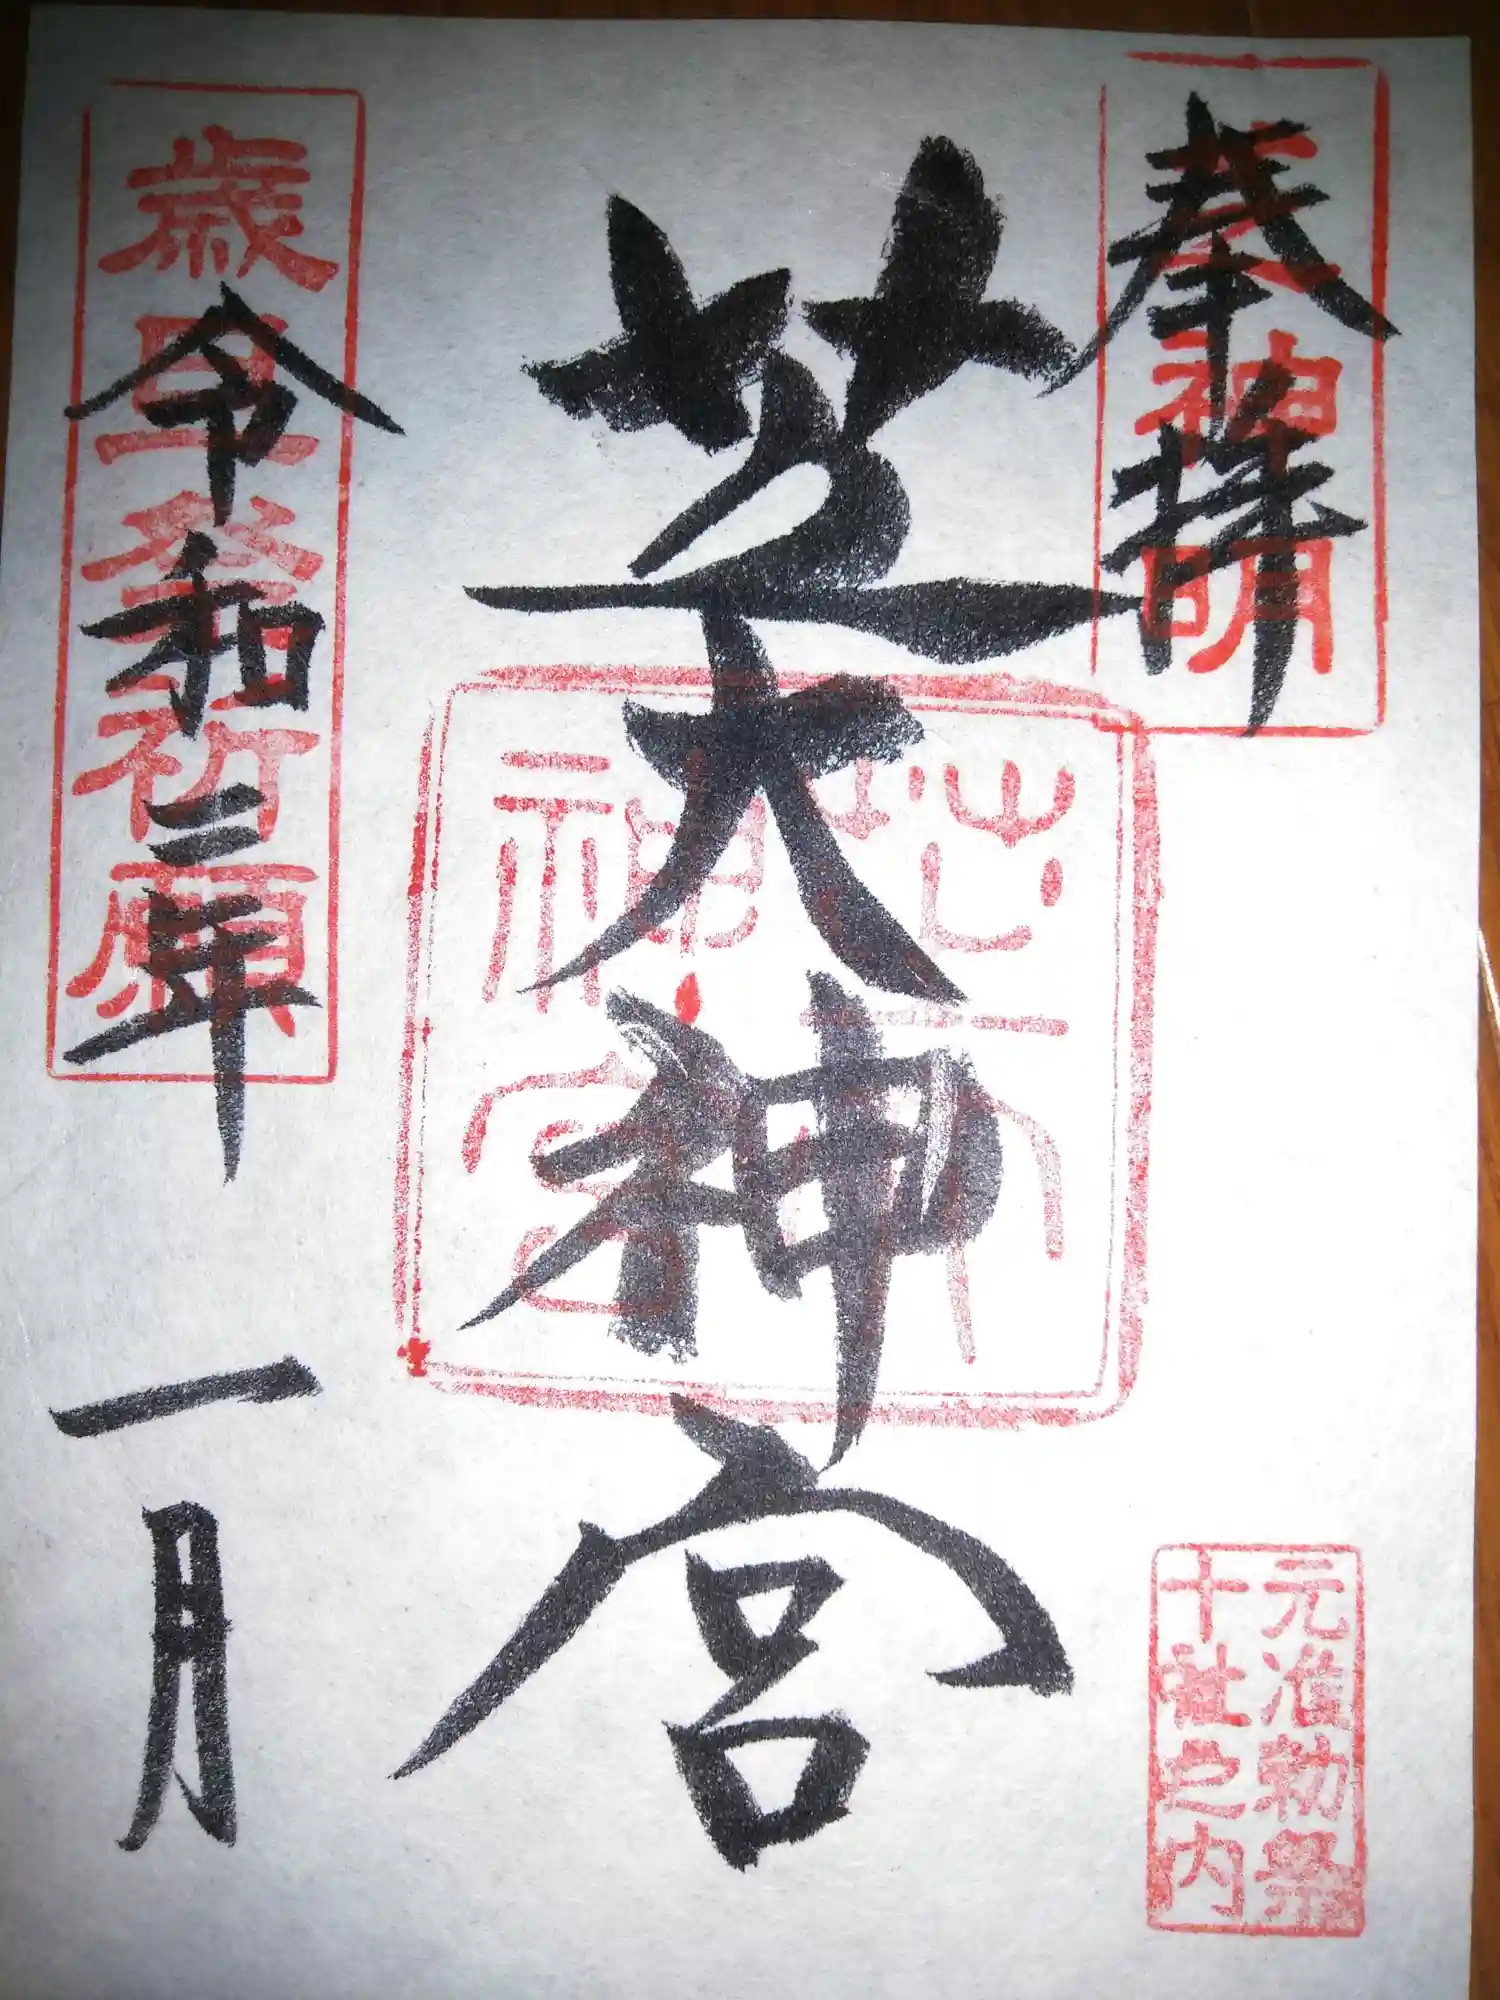 奉拝
神明
芝大神宮
芝大神宮
元准勅祭
十社之内
歳旦祭祈願
令和二年
一月